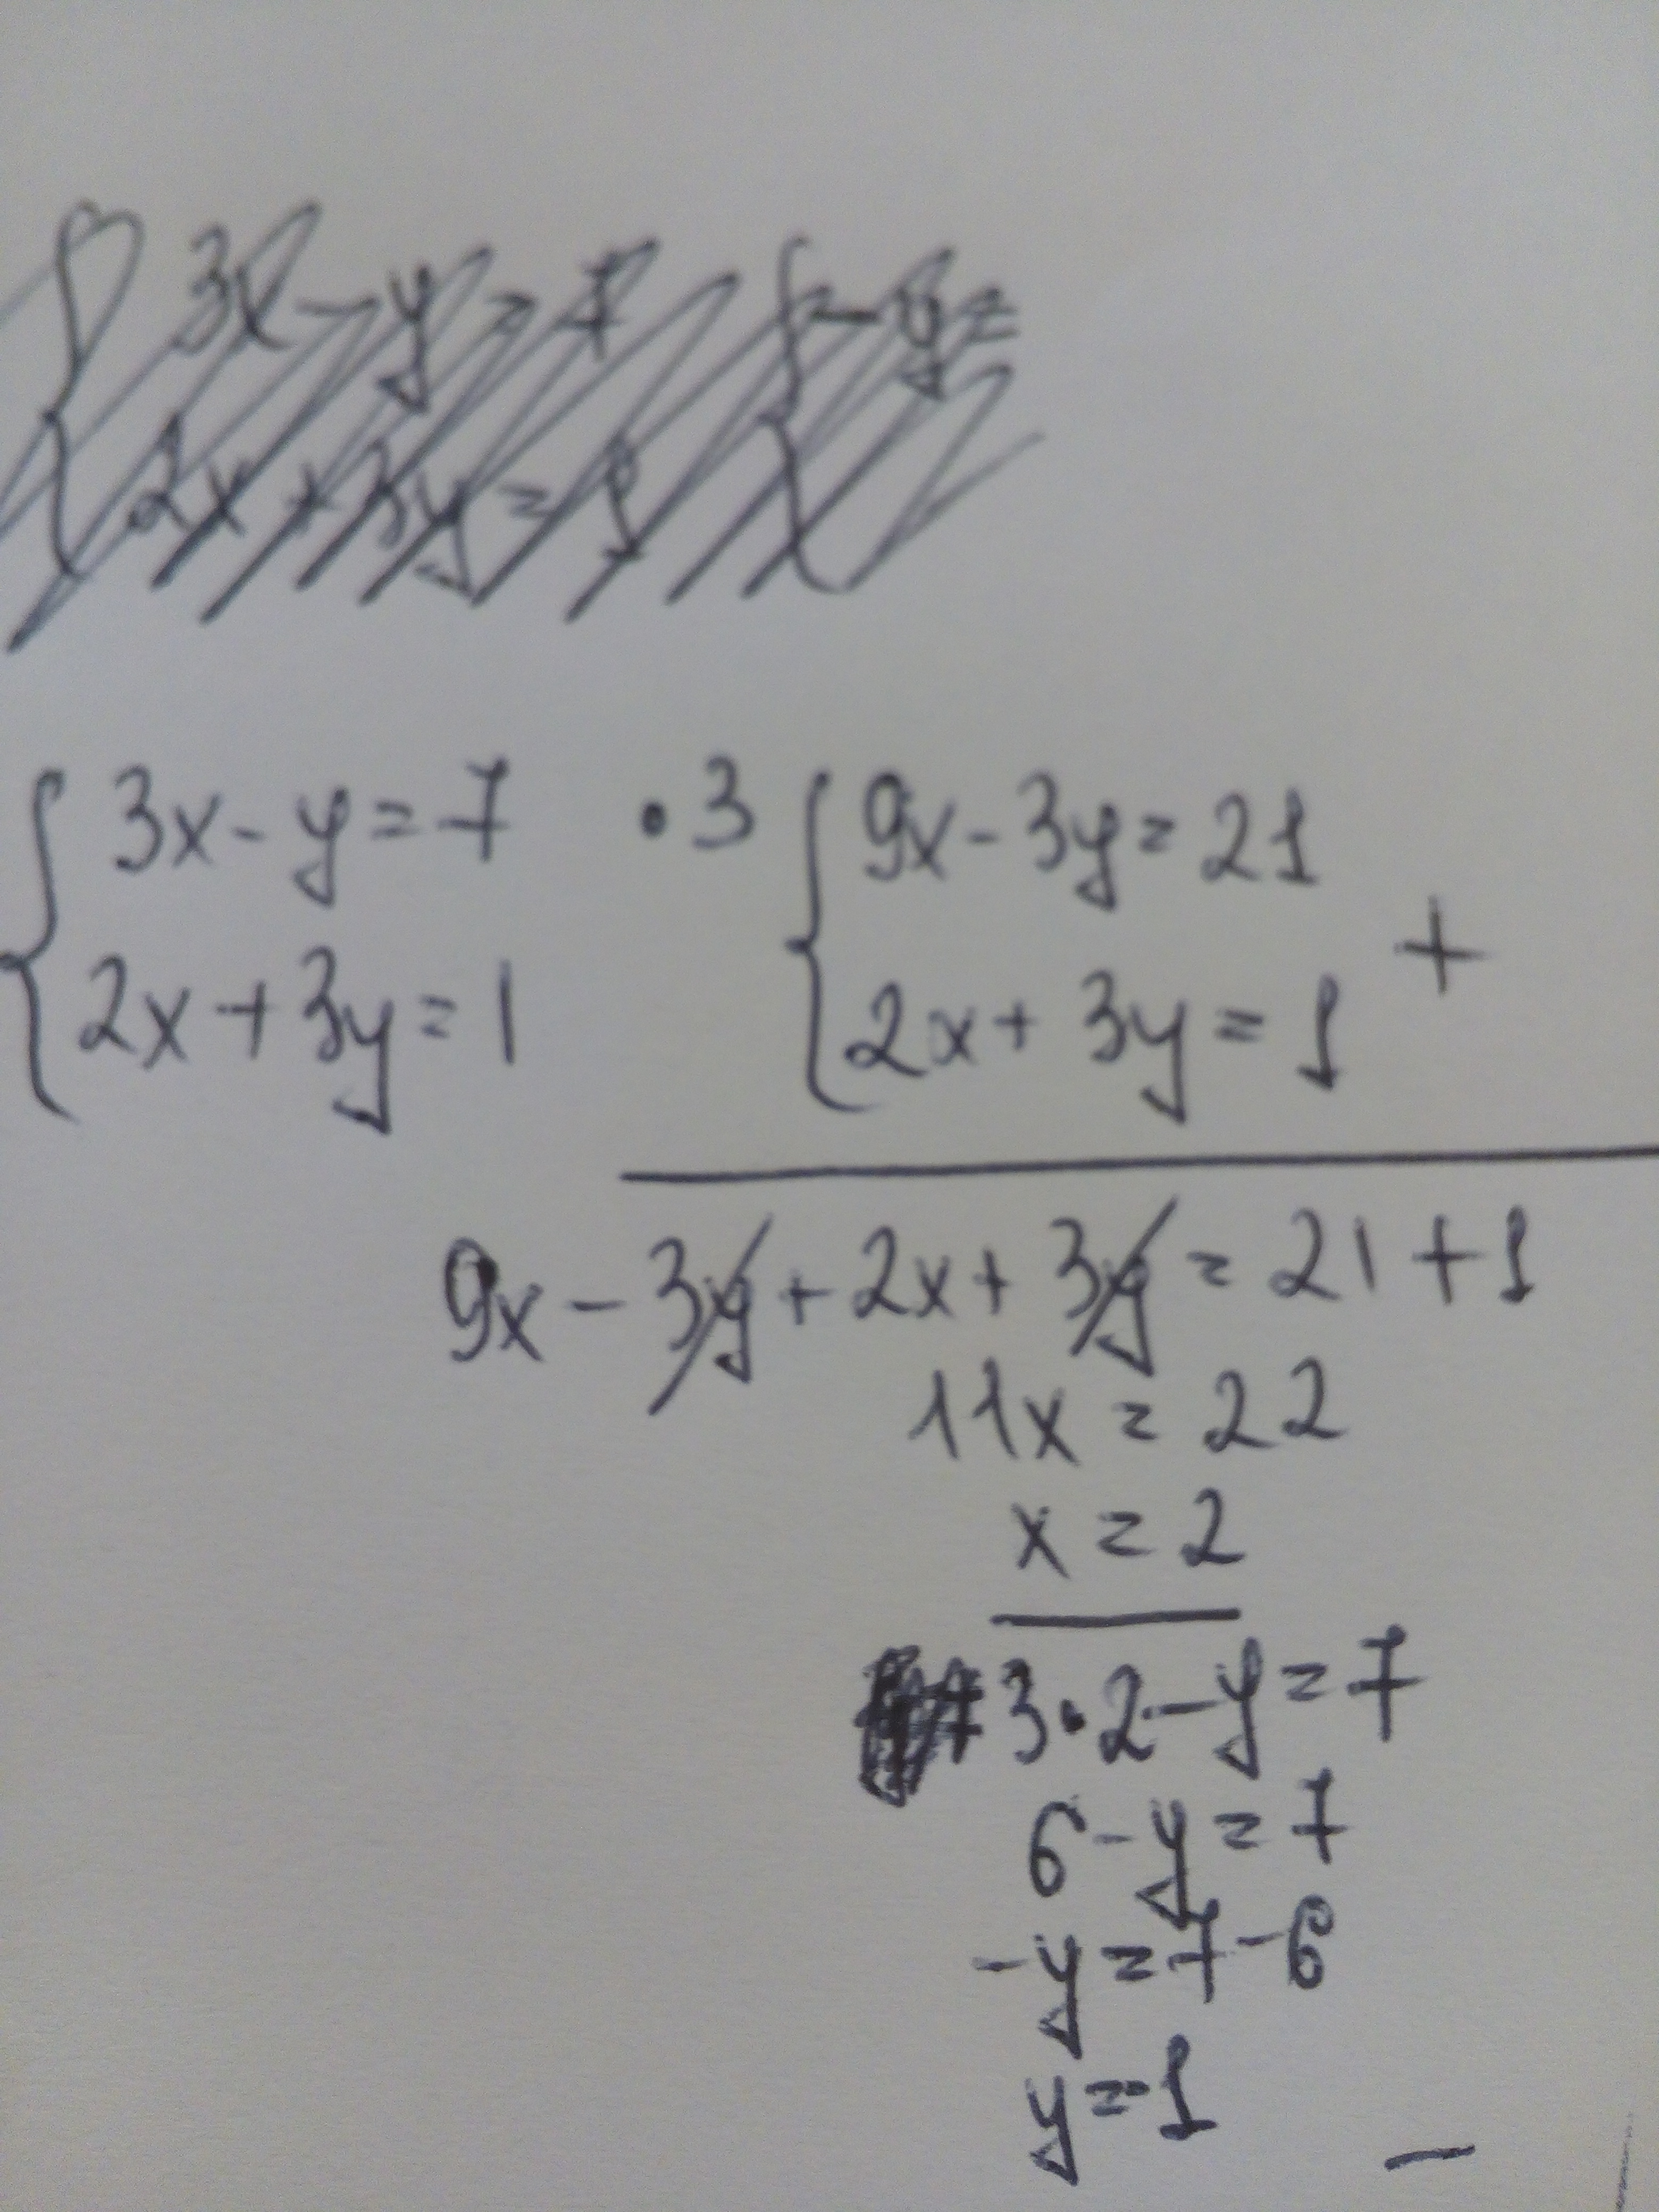 3x - y = 7
2x + 3y = 1
3x - y = 7 • 3
2x + 3y = 1
9x - 3y = 21
2x + 3y = 1 +
9x - 3y + 2x + 3y = 21 + 1
11x = 22
x = 2
3 • 2 - y = 7
6 - y = 7
-y = 7 - 6
y = -1